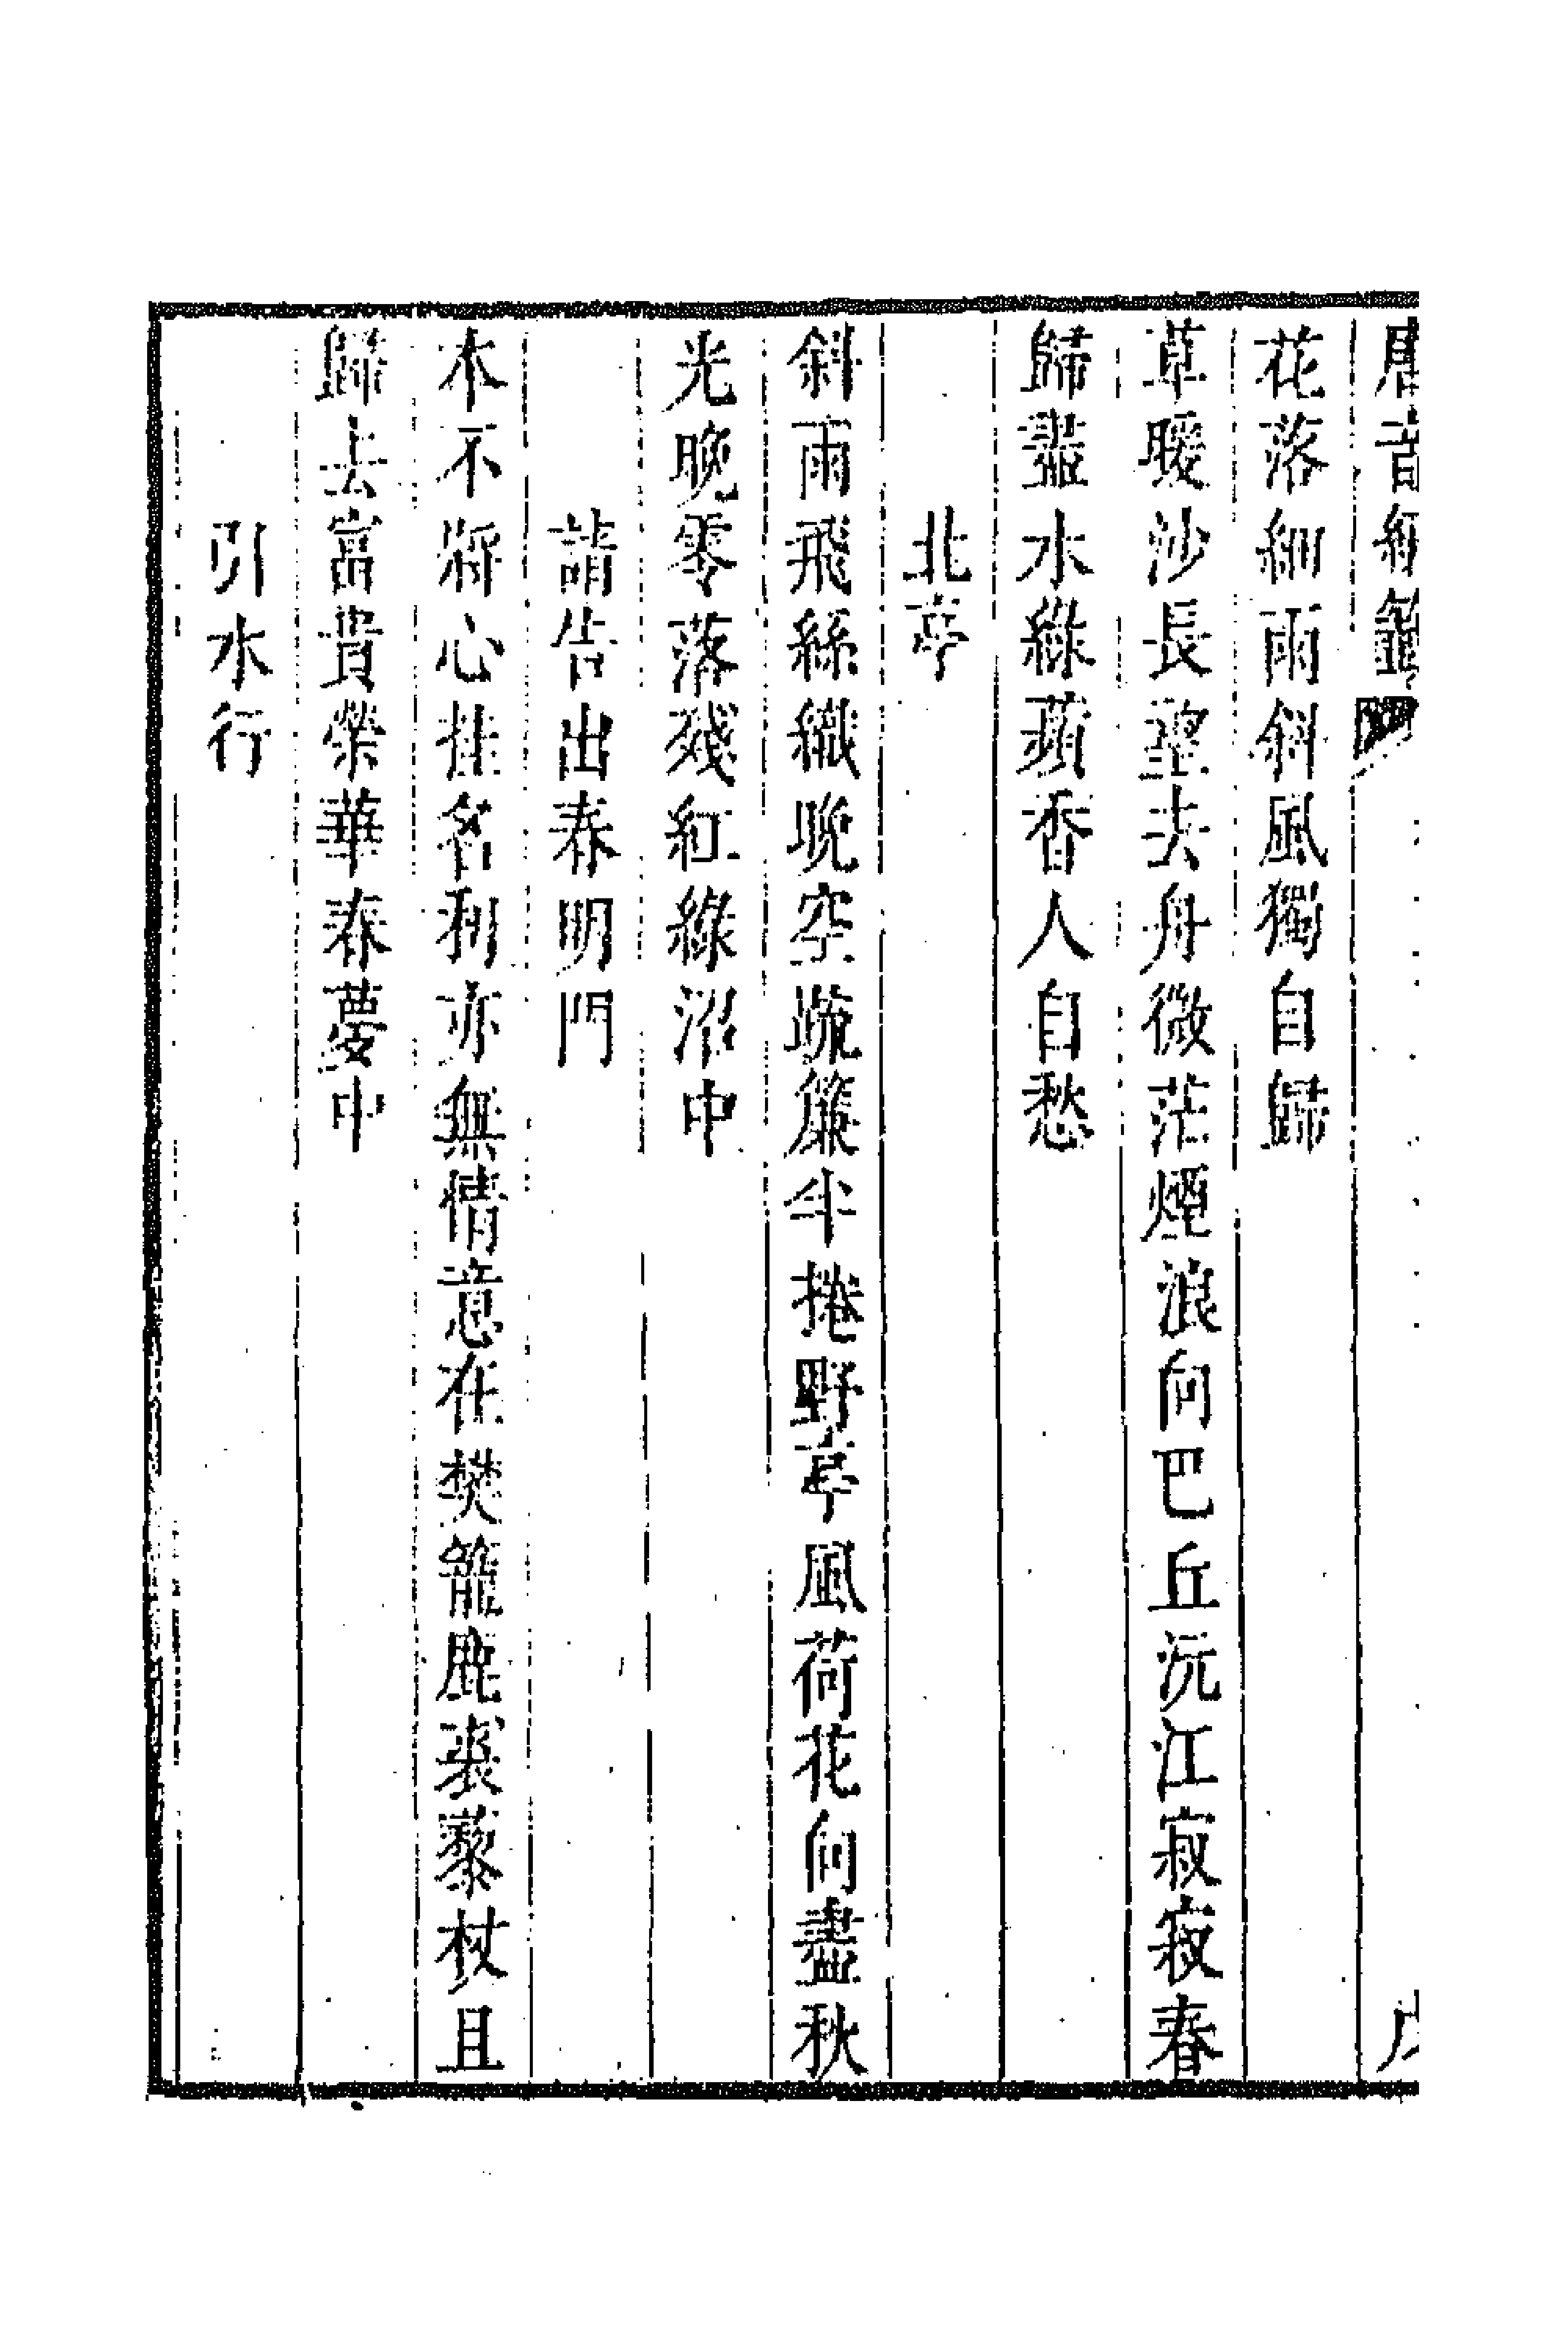 唐音統籤
花落細雨斜風獨自歸
草暖沙長望去舟微茫煙浪向巴丘沅江寂寂春
歸盡水綠蘋香人自愁
北亭
斜雨飛絲織晩空疏簾半捲野亭風荷花向盡秋
光晚零落殘紅綠沼中
請告出春明門
本不將心挂名利亦無情意在樊籠鹿裘藜杖且
歸去富貴榮華春夢中
引水行